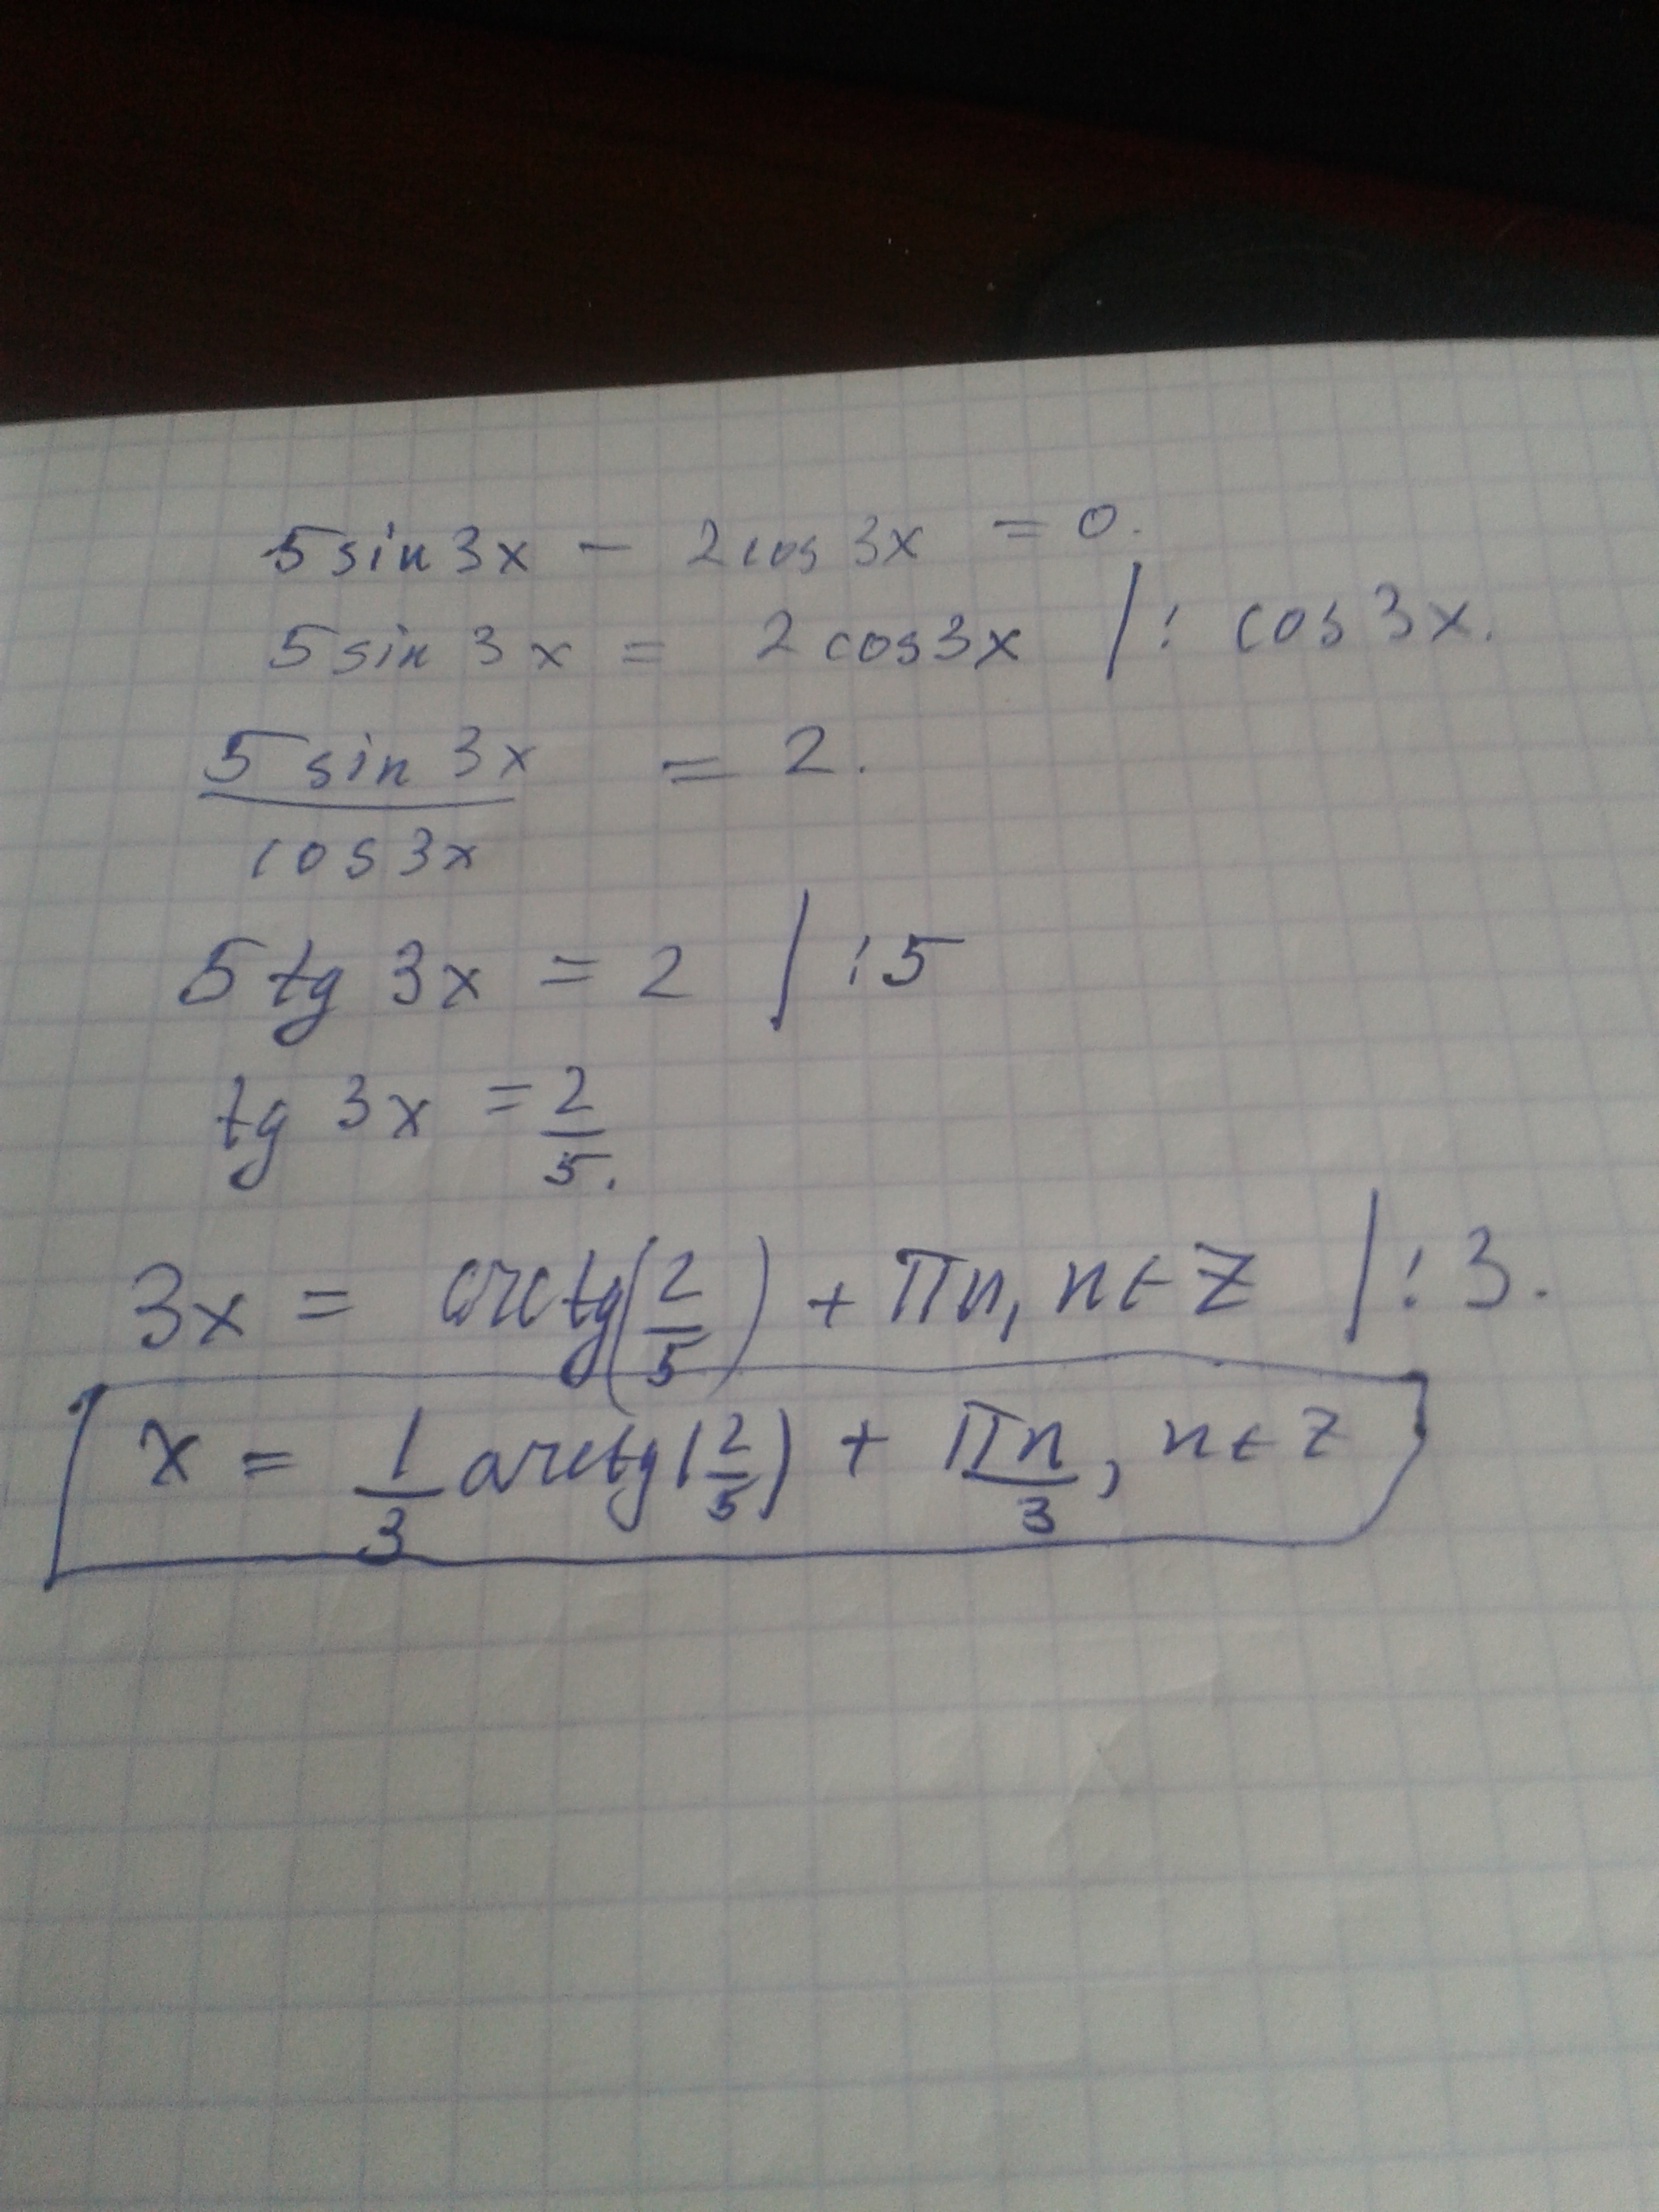 5 sin 3x − 2 cos 3x = 0.
5 sin 3x = 2 cos 3x | : cos 3x.
5 sin 3x / cos 3x = 2.
5 tg 3x = 2 | : 5
tg 3x = 2/5.
3x = arctg(2/5) + πn, n ∈ Z | : 3.
x = 1/3 arctg(2/5) + πn/3, n ∈ Z